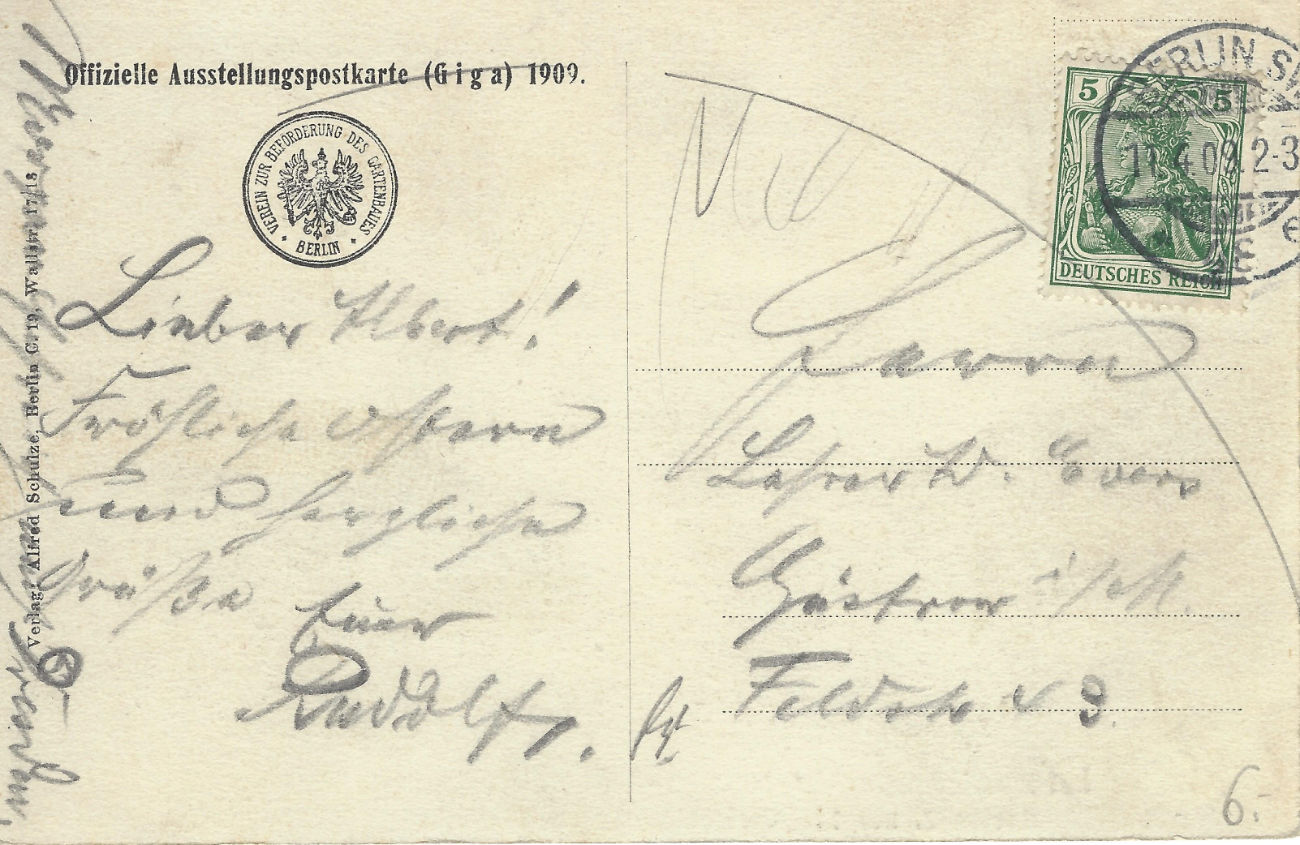 Offizielle Ausstellungspostkarte (Giga) 1909.
VEREIN ZUR BEFÖRDERUNG DES GARTENBAUES
BERLIN
Lieber Albert!
Fröhliche Ostern
und herzliche
Grüße
Euer
Rudolf.
Verlag: Alfred Schulze, Berlin C. 19, Wallstr. 17/18
5 5
DEUTSCHES REICH
BERLIN
11.4.09. 2-3
Herrn
Lehrer W. Evers
Güstrow i/M.
Feldstr 48
6.-